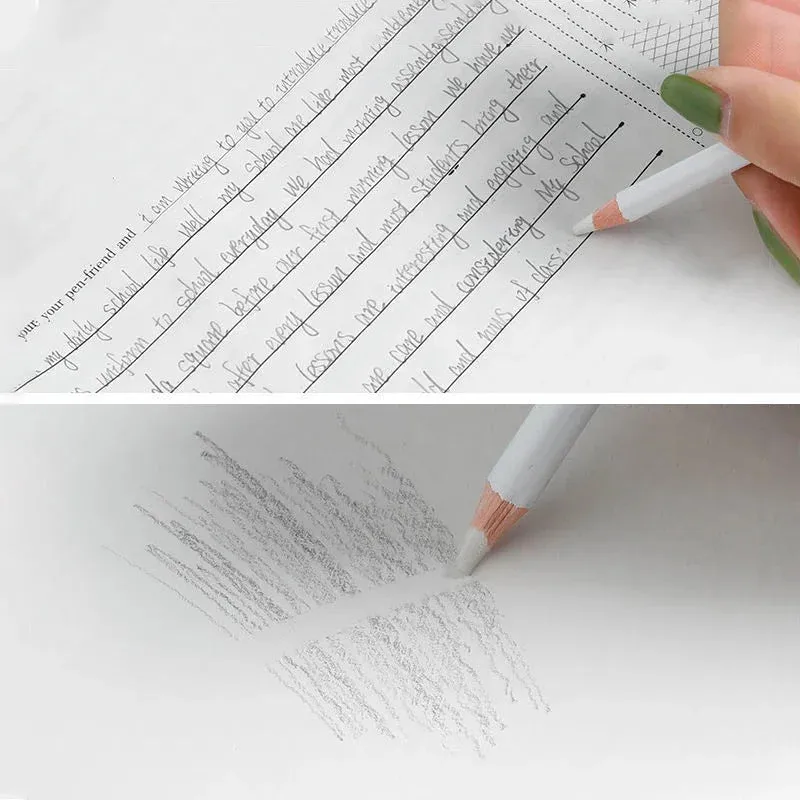 your your pen-friend and i am writing to you to introduce introduce
my daily school life well, my school are like most
uniform to school everyday We had morning assembly
square before our first morning lesson We have
after every lesson and most students bring their
lessons are interesting and engaging and
are care and considering My school
and of class